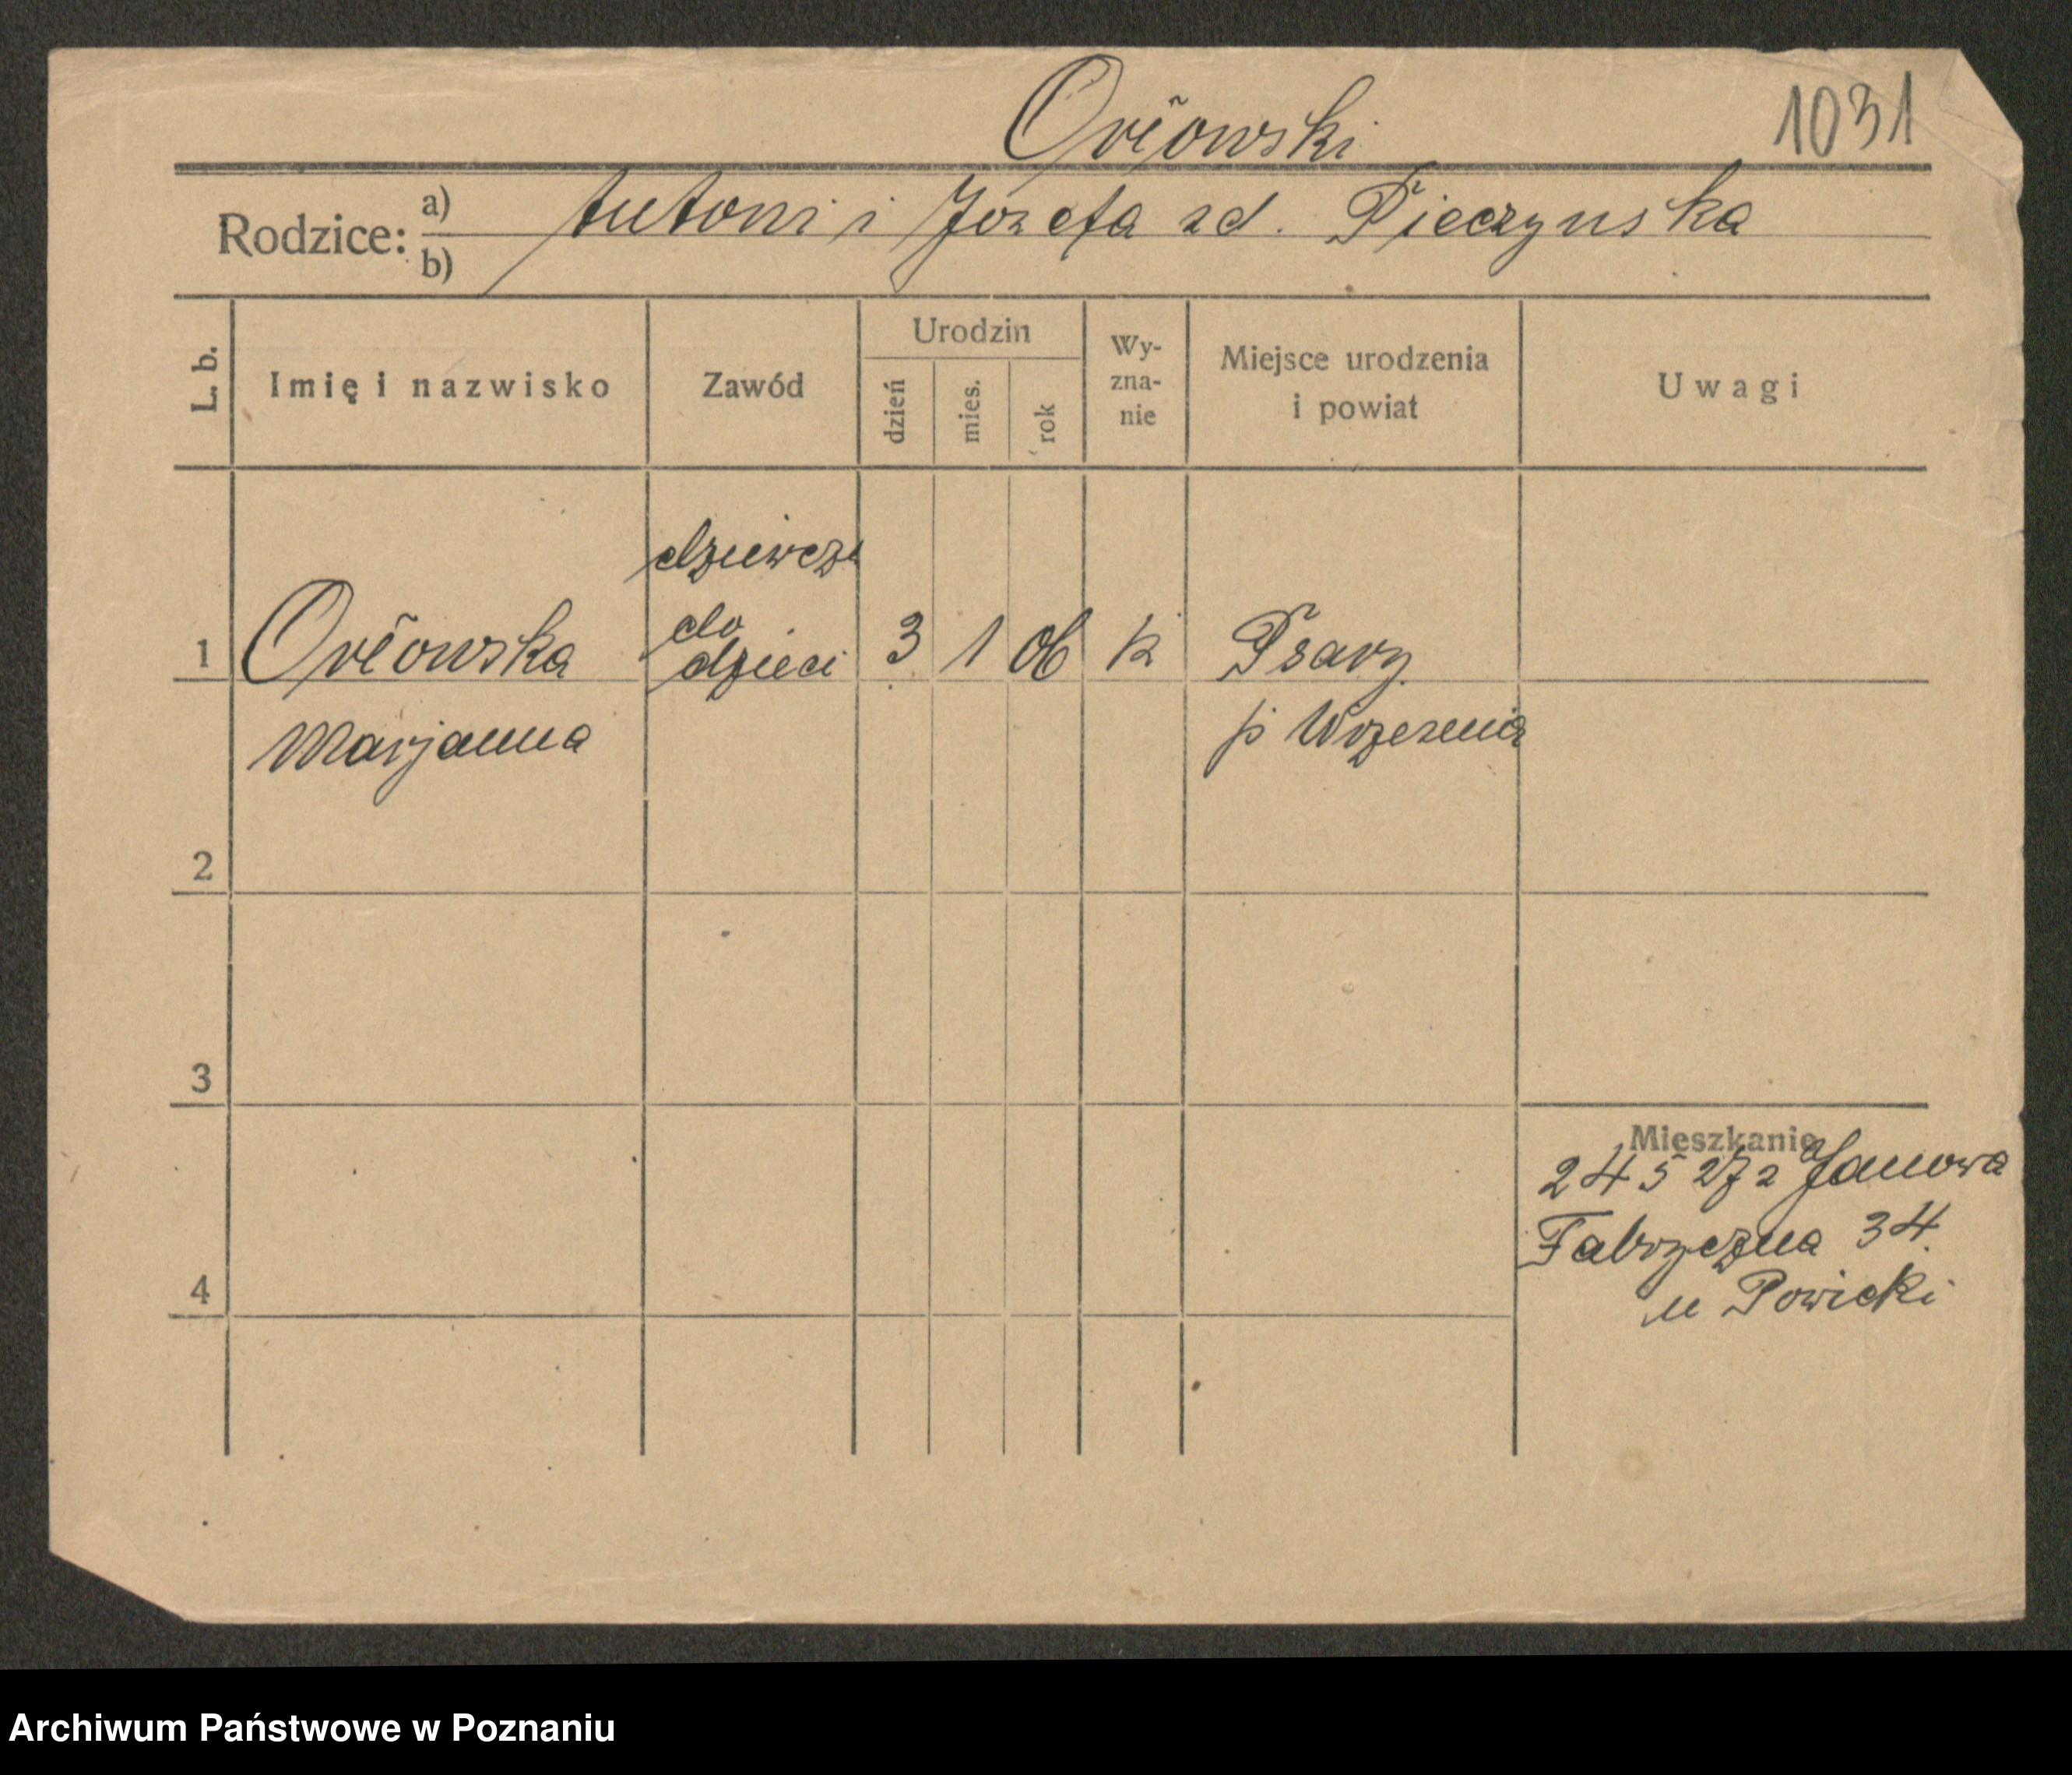 Orłowski
1031
Rodzice: a) b) Antoni i Józefa zd. Pieczynska
L. b.
Imię i nazwisko
Zawód
Urodzin
dzień
mies.
rok
Wy-
zna-
nie
Miejsce urodzenia
i powiat
Uwagi
dziewczę
do
dzieci
1 Orłowska 3 1 06 k Psary
Marjanna
p Wrzesnia
2
3
Mieszkanie
24 5 27 z Janowa
Fabryczna 34
4
u Powicki
Archiwum Państwowe w Poznaniu